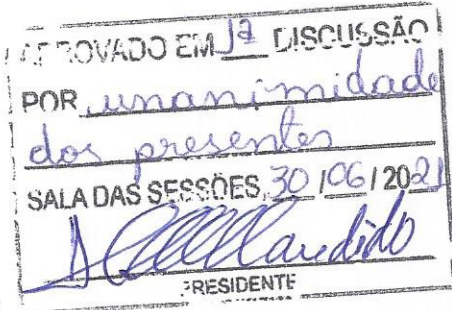 APROVADO EM 1ª DISCUSSÃO
POR unanimidade
dos presentes
SALA DAS SESSÕES, 30 / 06 / 2021
PRESIDENTE